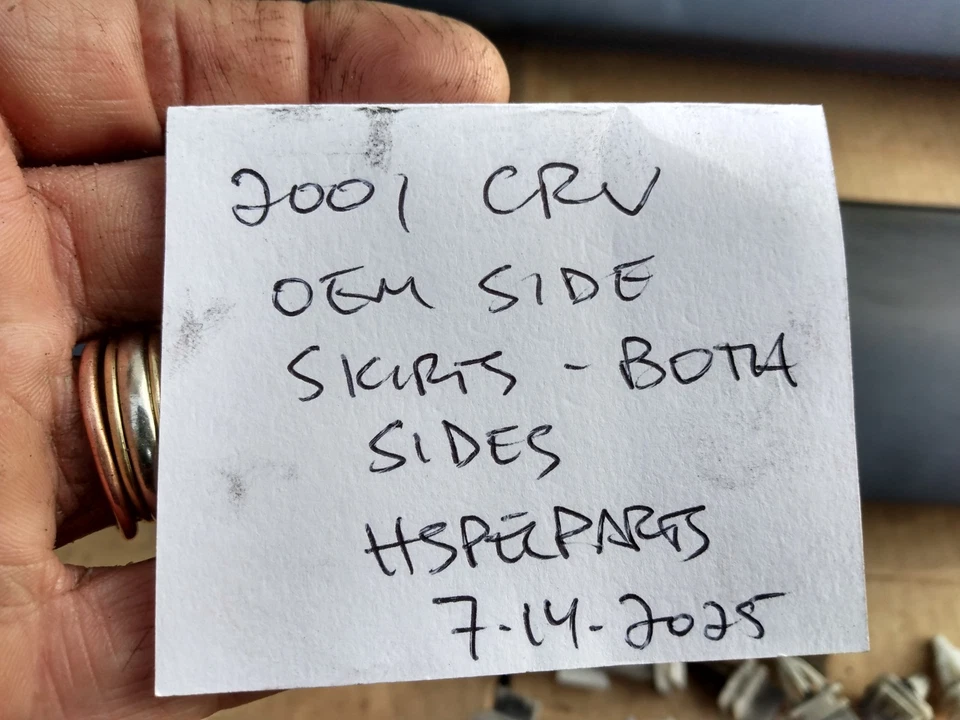 2001 CRV
OEM SIDE
SKIRTS - BOTH
SIDES
HSPECPARTS
7-14-2025